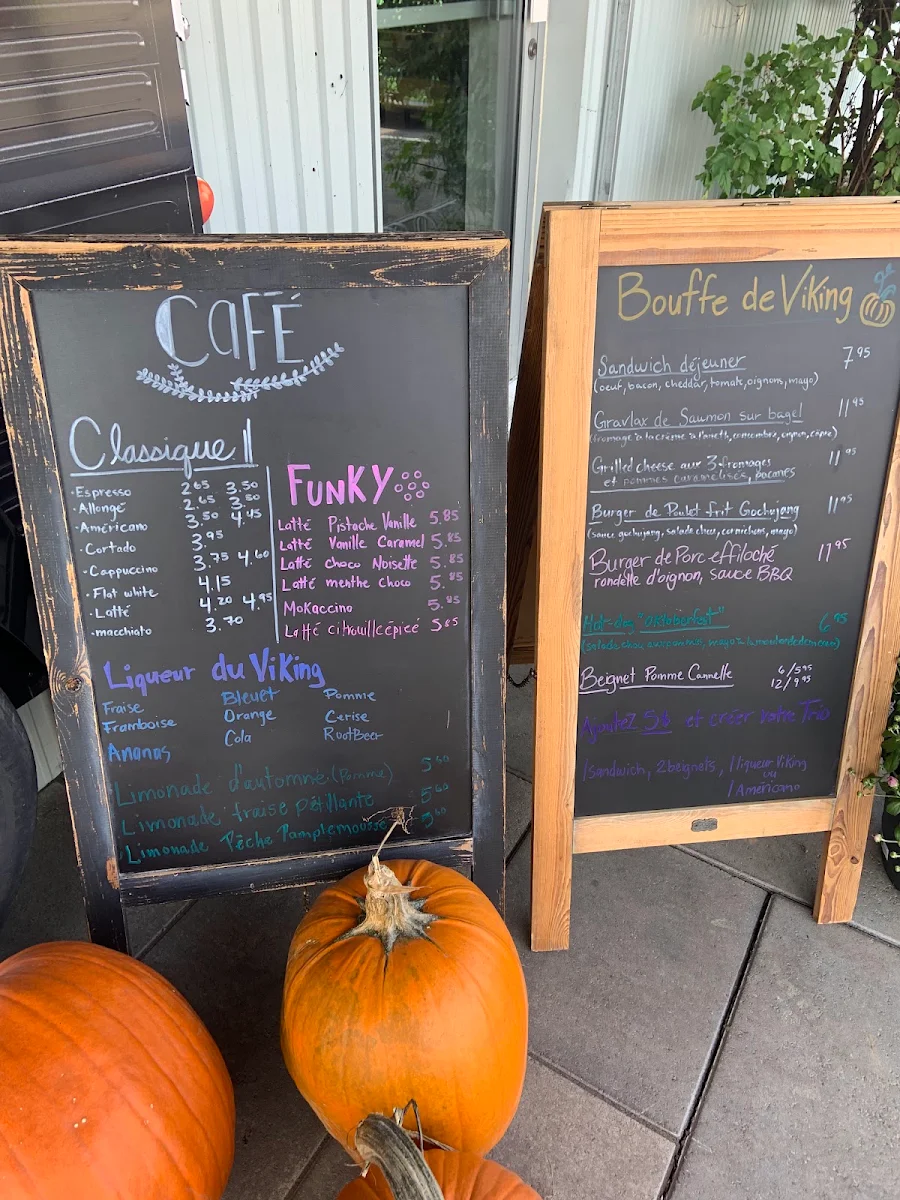 CAFÉ
Classique
• Espresso 2.65 3.50
• Allongé 2.65 3.50
• Américano 3.50 4.45
• Cortado 3.95
• Cappuccino 3.75 4.60
• Flat white 4.15
• Latté 4.20 4.95
• macchiato 3.70
FUNKY
Latté Pistache Vanille 5.85
Latté Vanille Caramel 5.85
Latté choco Noisette 5.85
Latté menthe choco 5.85
Mokaccino 5.85
Latté citrouille épicé 5.85
Liqueur du Viking
Fraise Bleuet Pomme
Framboise Orange Cerise
Ananas Cola RootBeer
Limonade d'automne (Pomme) 5.60
Limonade fraise pétillante 5.60
Limonade Pêche Pamplemousse 5.60
Bouffe de Viking
Sandwich déjeuner 7.95
(oeuf, bacon, cheddar, tomate, oignons, mayo)
Gravlax de Saumon sur bagel 11.95
(fromage à la crème à l'aneth, concombre, oignon, câpre)
Grilled cheese aux 3 fromages 11.95
et pommes caramélisés, bacones
Burger de Poulet frit Gochujang 11.95
(sauce gochujang, salade choux, cornichons, mayo)
Burger de Porc effiloché 11.95
rondelle d'oignon, sauce BBQ
Hot-dog "oktoberfest" 6.95
(salade chou aux pomme, mayo à la moutarde de meaux)
Beignet Pomme Cannelle 6/5.95
12/9.95
Ajoutez 5$ et créer votre Trio
1 sandwich, 2 beignets, 1 liqueur Viking
ou
1 Américano